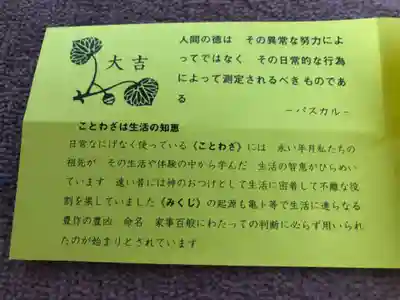 大吉
人間の徳は　その異常な努力によ
ってではなく　その日常的な行為
によって測定されるべきものであ
る
－パスカル－
ことわざは生活の知恵
日常なにげなく使っている《ことわざ》には　永い年月私たちの
祖先が　その生活や体験の中から学んだ　生活の智恵がひらめい
ています　遠い昔には神のおつげとして生活に密着して不離な役
割を果していました《みくじ》の起源も亀卜等で生活に連らなる
豊作の豊凶　命名　家事百般にわたっての判断に必らず用いられ
たのが始まりとされています